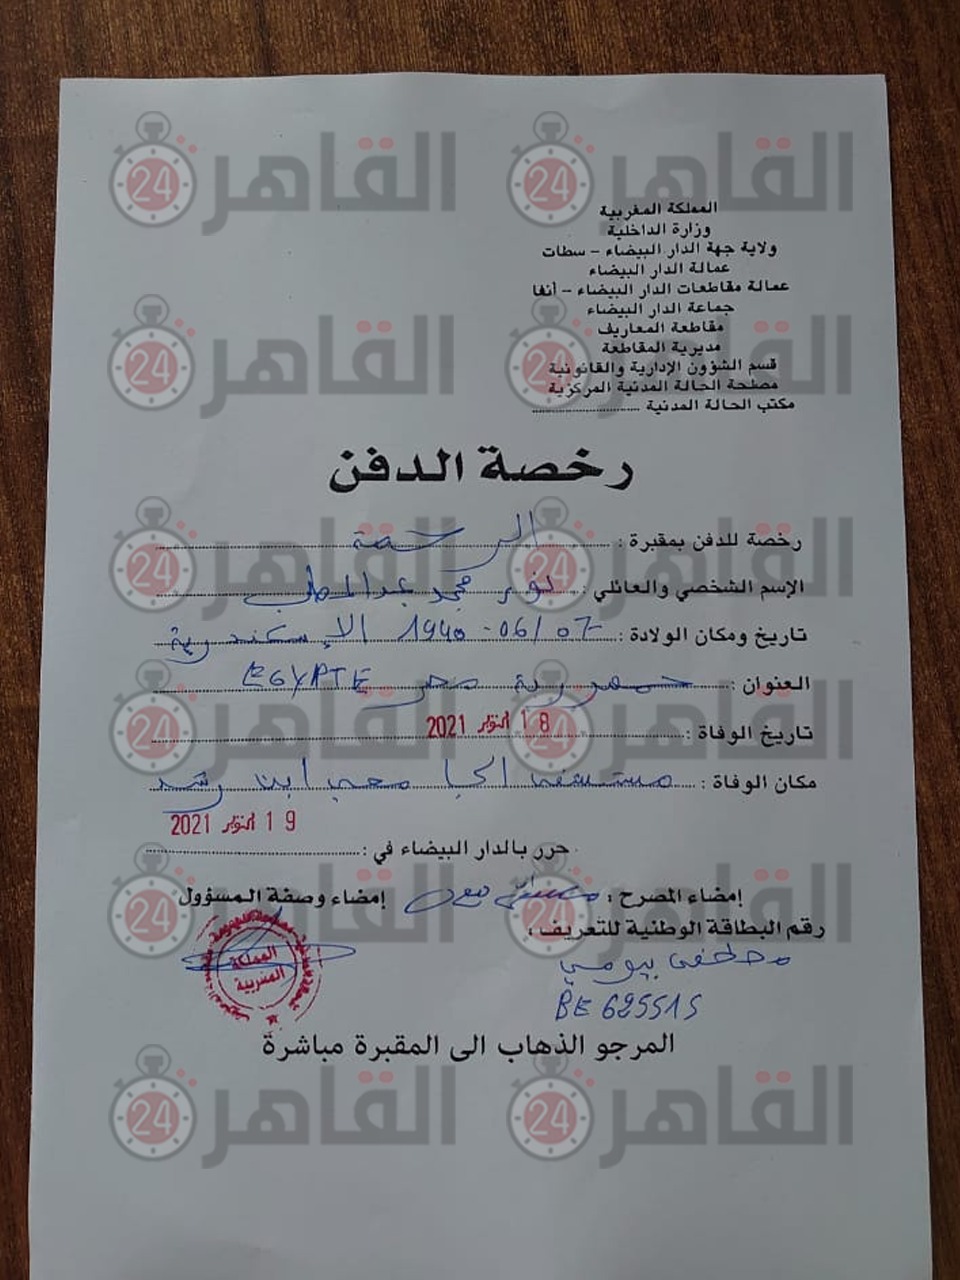 المملكة المغربية
وزارة الداخلية
ولاية جهة الدار البيضاء – سطات
عمالة الدار البيضاء
عمالة مقاطعات الدار البيضاء – أنفا
جماعة الدار البيضاء
مقاطعة المعاريف
مديرية المقاطعة
قسم الشؤون الإدارية والقانونية
مصلحة الحالة المدنية المركزية
مكتب الحالة المدنية
رخصة الدفن
رخصة للدفن بمقبرة : الرحمة
الإسم الشخصي والعائلي : محمد عبد المطلب
تاريخ ومكان الولادة : 06/07-1940 الإسكندرية
العنوان : جمهورية مصر EGYPTE
تاريخ الوفاة : 18 أكتوبر 2021
مكان الوفاة : مستشفى الجامعي ابن رشد
19 أكتوبر 2021
حرر بالدار البيضاء في :
إمضاء المصرح :
إمضاء وصفة المسؤول
رقم البطاقة الوطنية للتعريف :
مصطفى بيومي
BE 625515
المملكة
المغربية
المرجو الذهاب الى المقبرة مباشرة
القاهرة 24